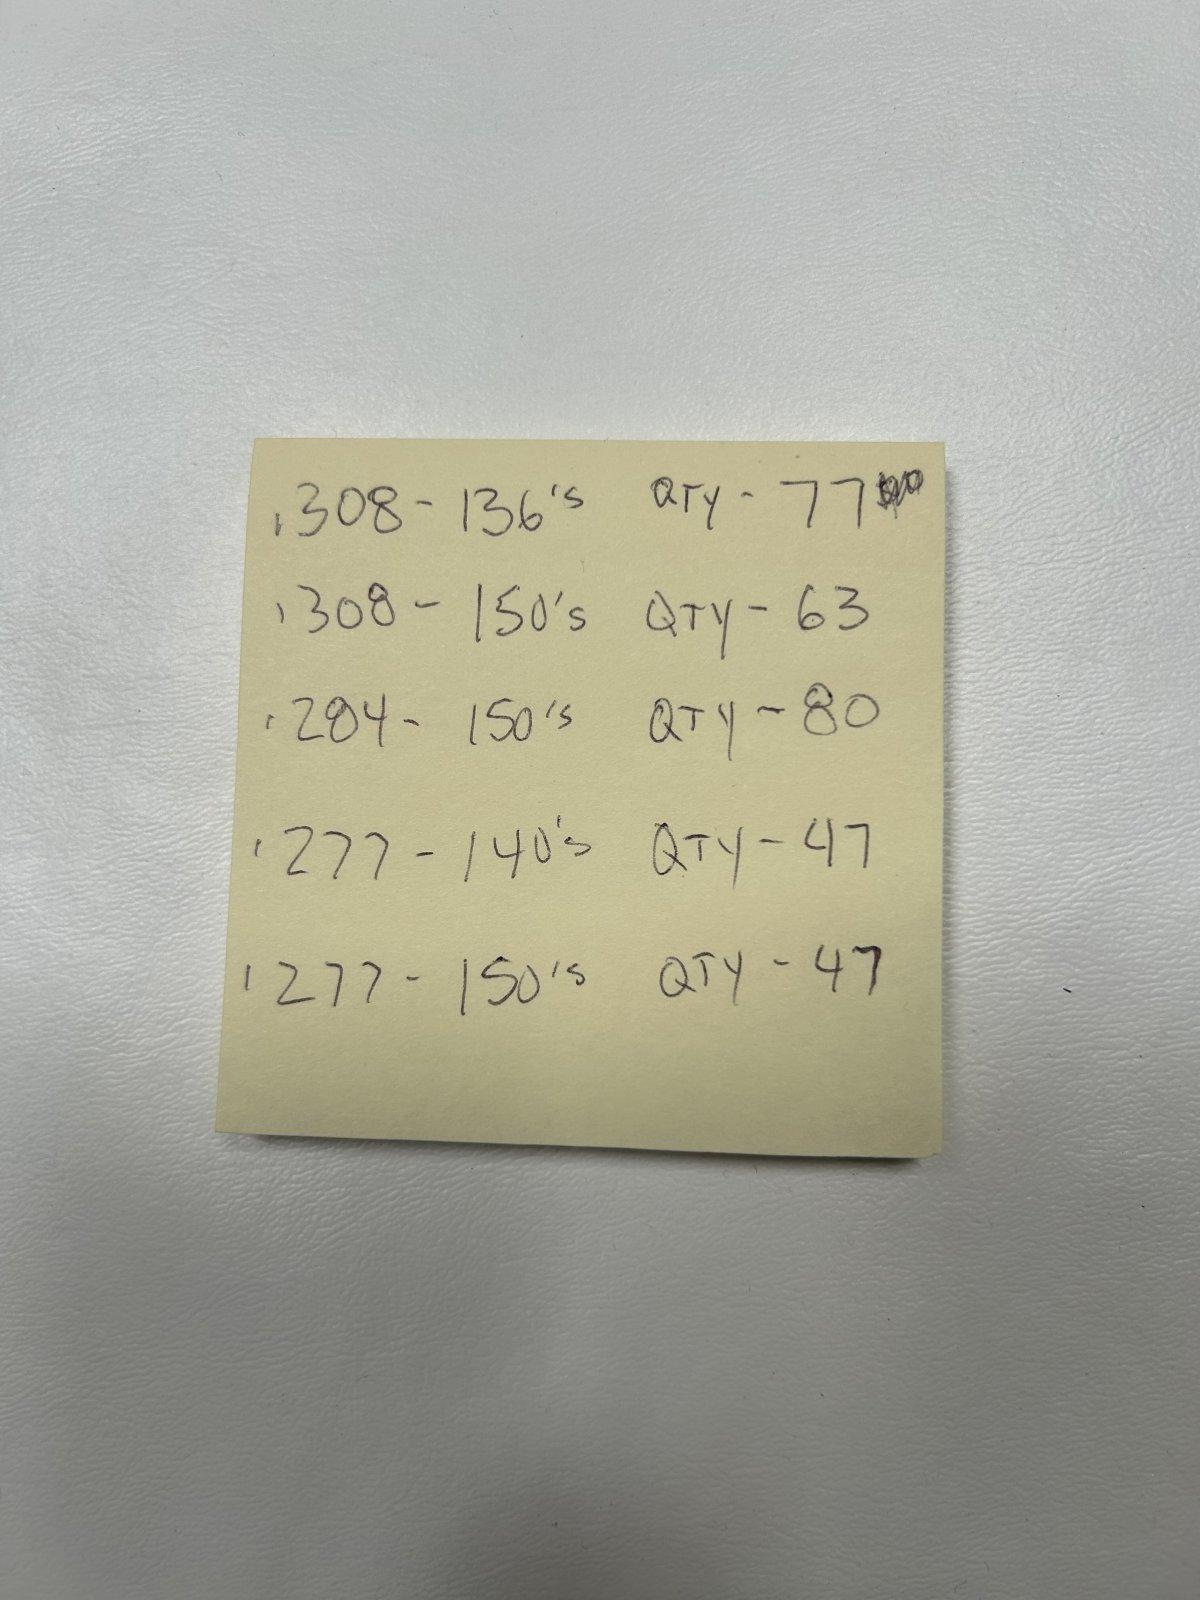 .308 - 136's QTY - 77
.308 - 150's QTY - 63
.284 - 150's QTY - 80
.277 - 140's QTY - 47
.277 - 150's QTY - 47